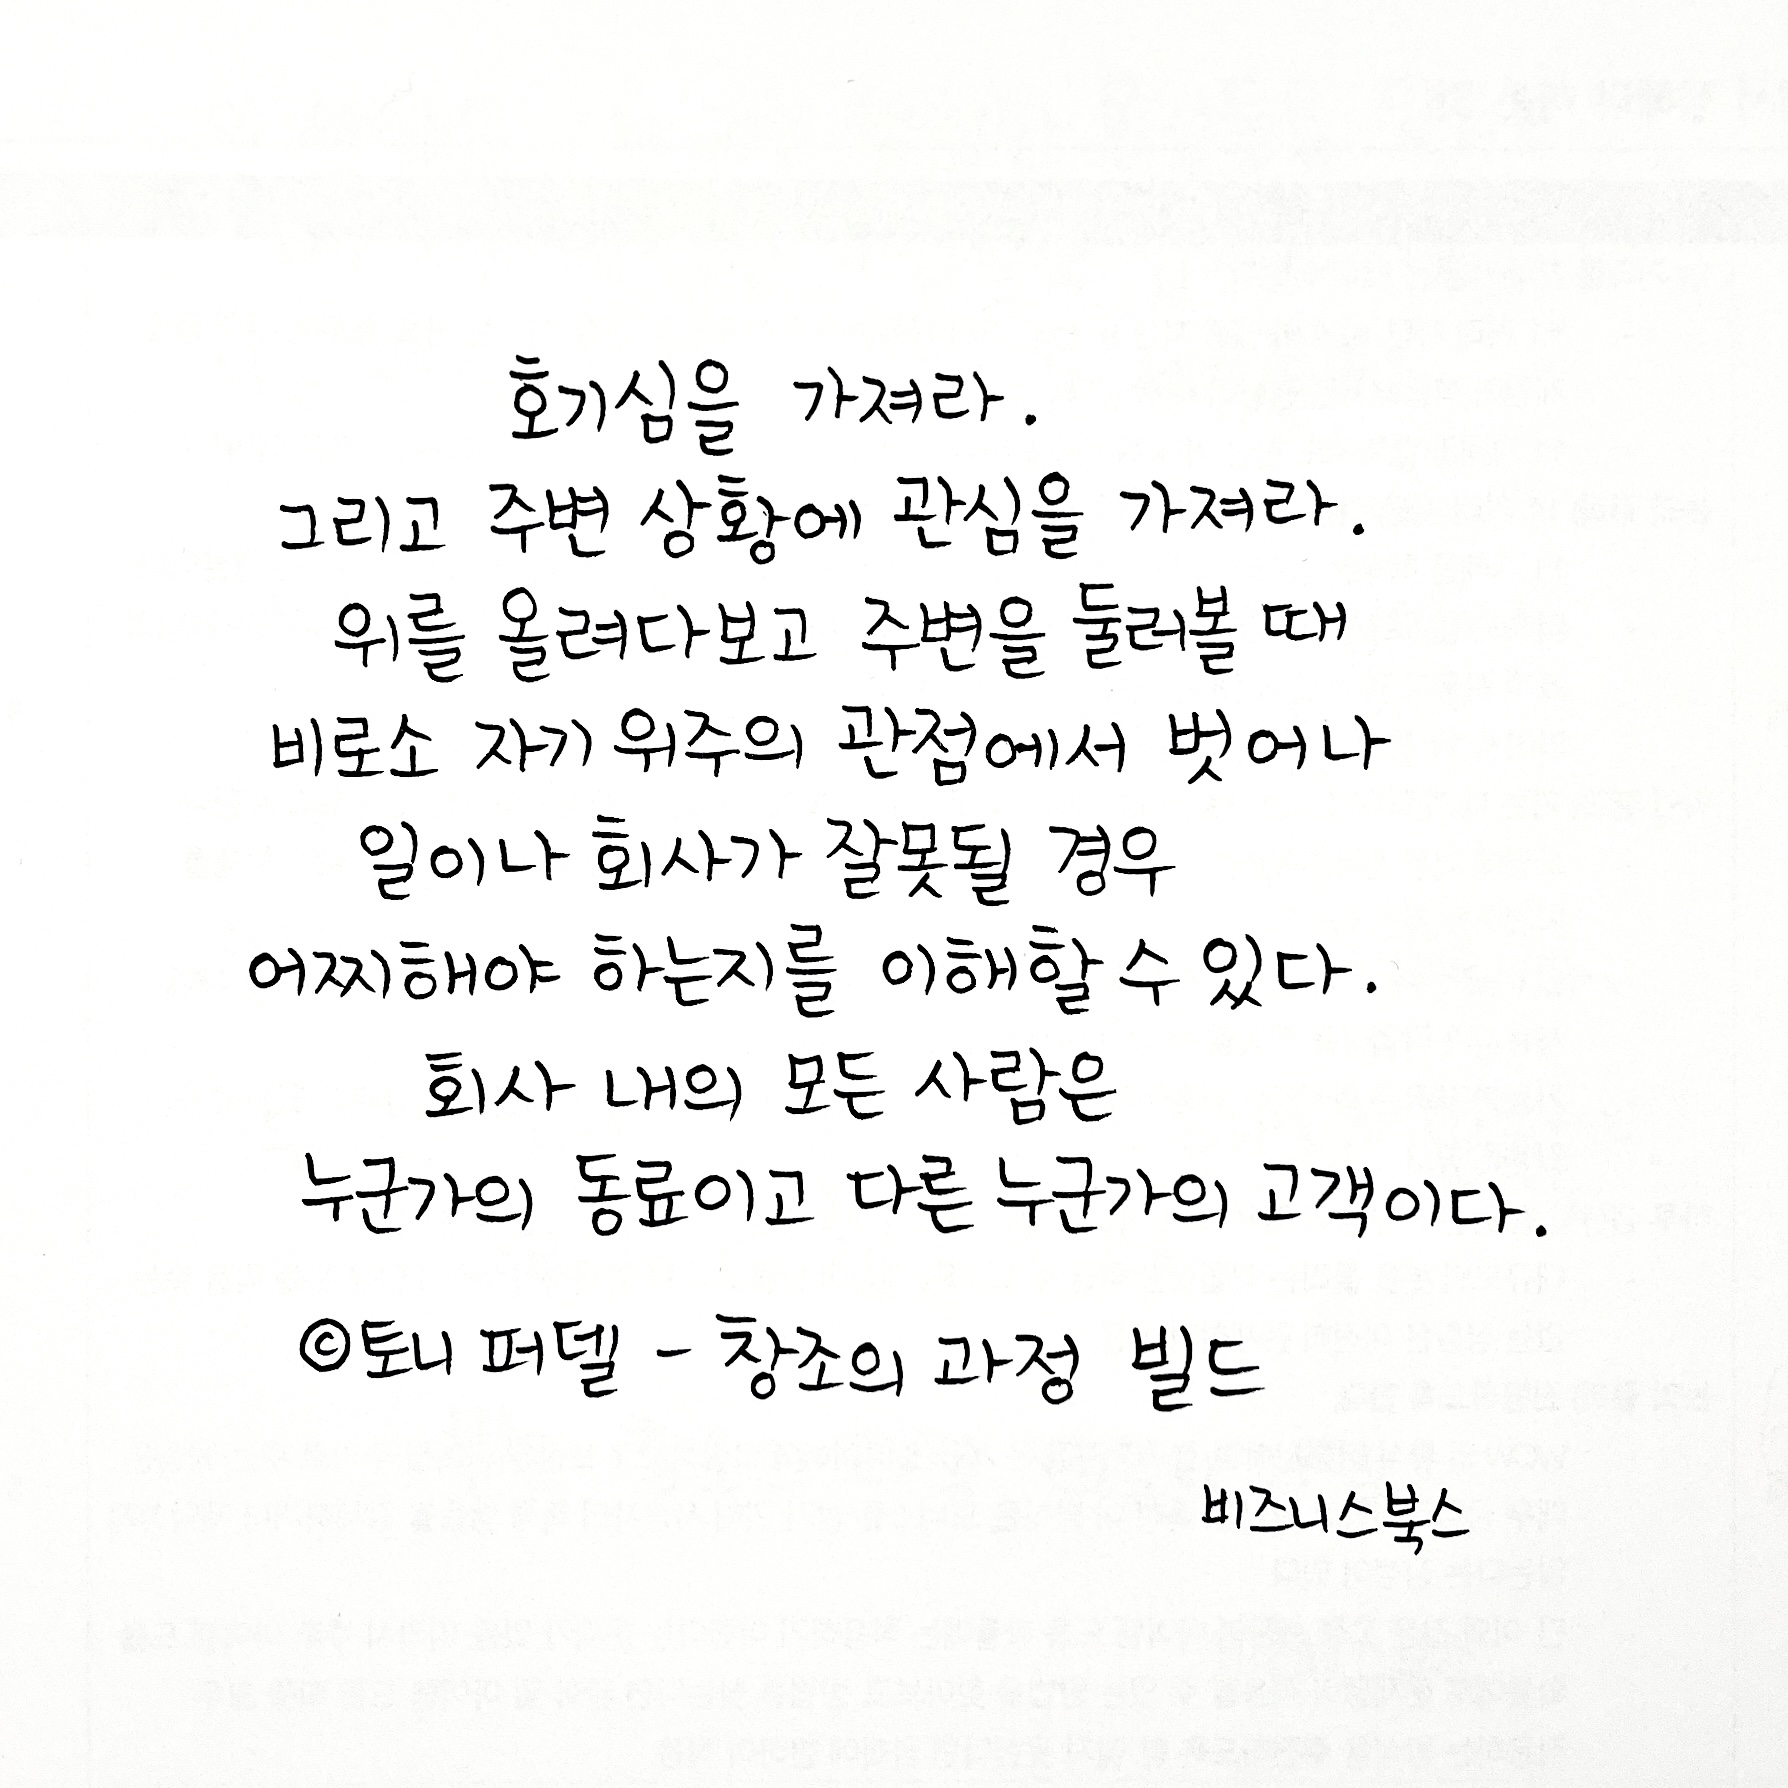 호기심을 가져라.
그리고 주변 상황에 관심을 가져라.
위를 올려다보고 주변을 둘러볼 때
비로소 자기 위주의 관점에서 벗어나
일이나 회사가 잘못될 경우
어찌해야 하는지를 이해할 수 있다.
회사 내의 모든 사람은
누군가의 동료이고 다른 누군가의 고객이다.
©토니 퍼델 - 창조의 과정 빌드
비즈니스북스